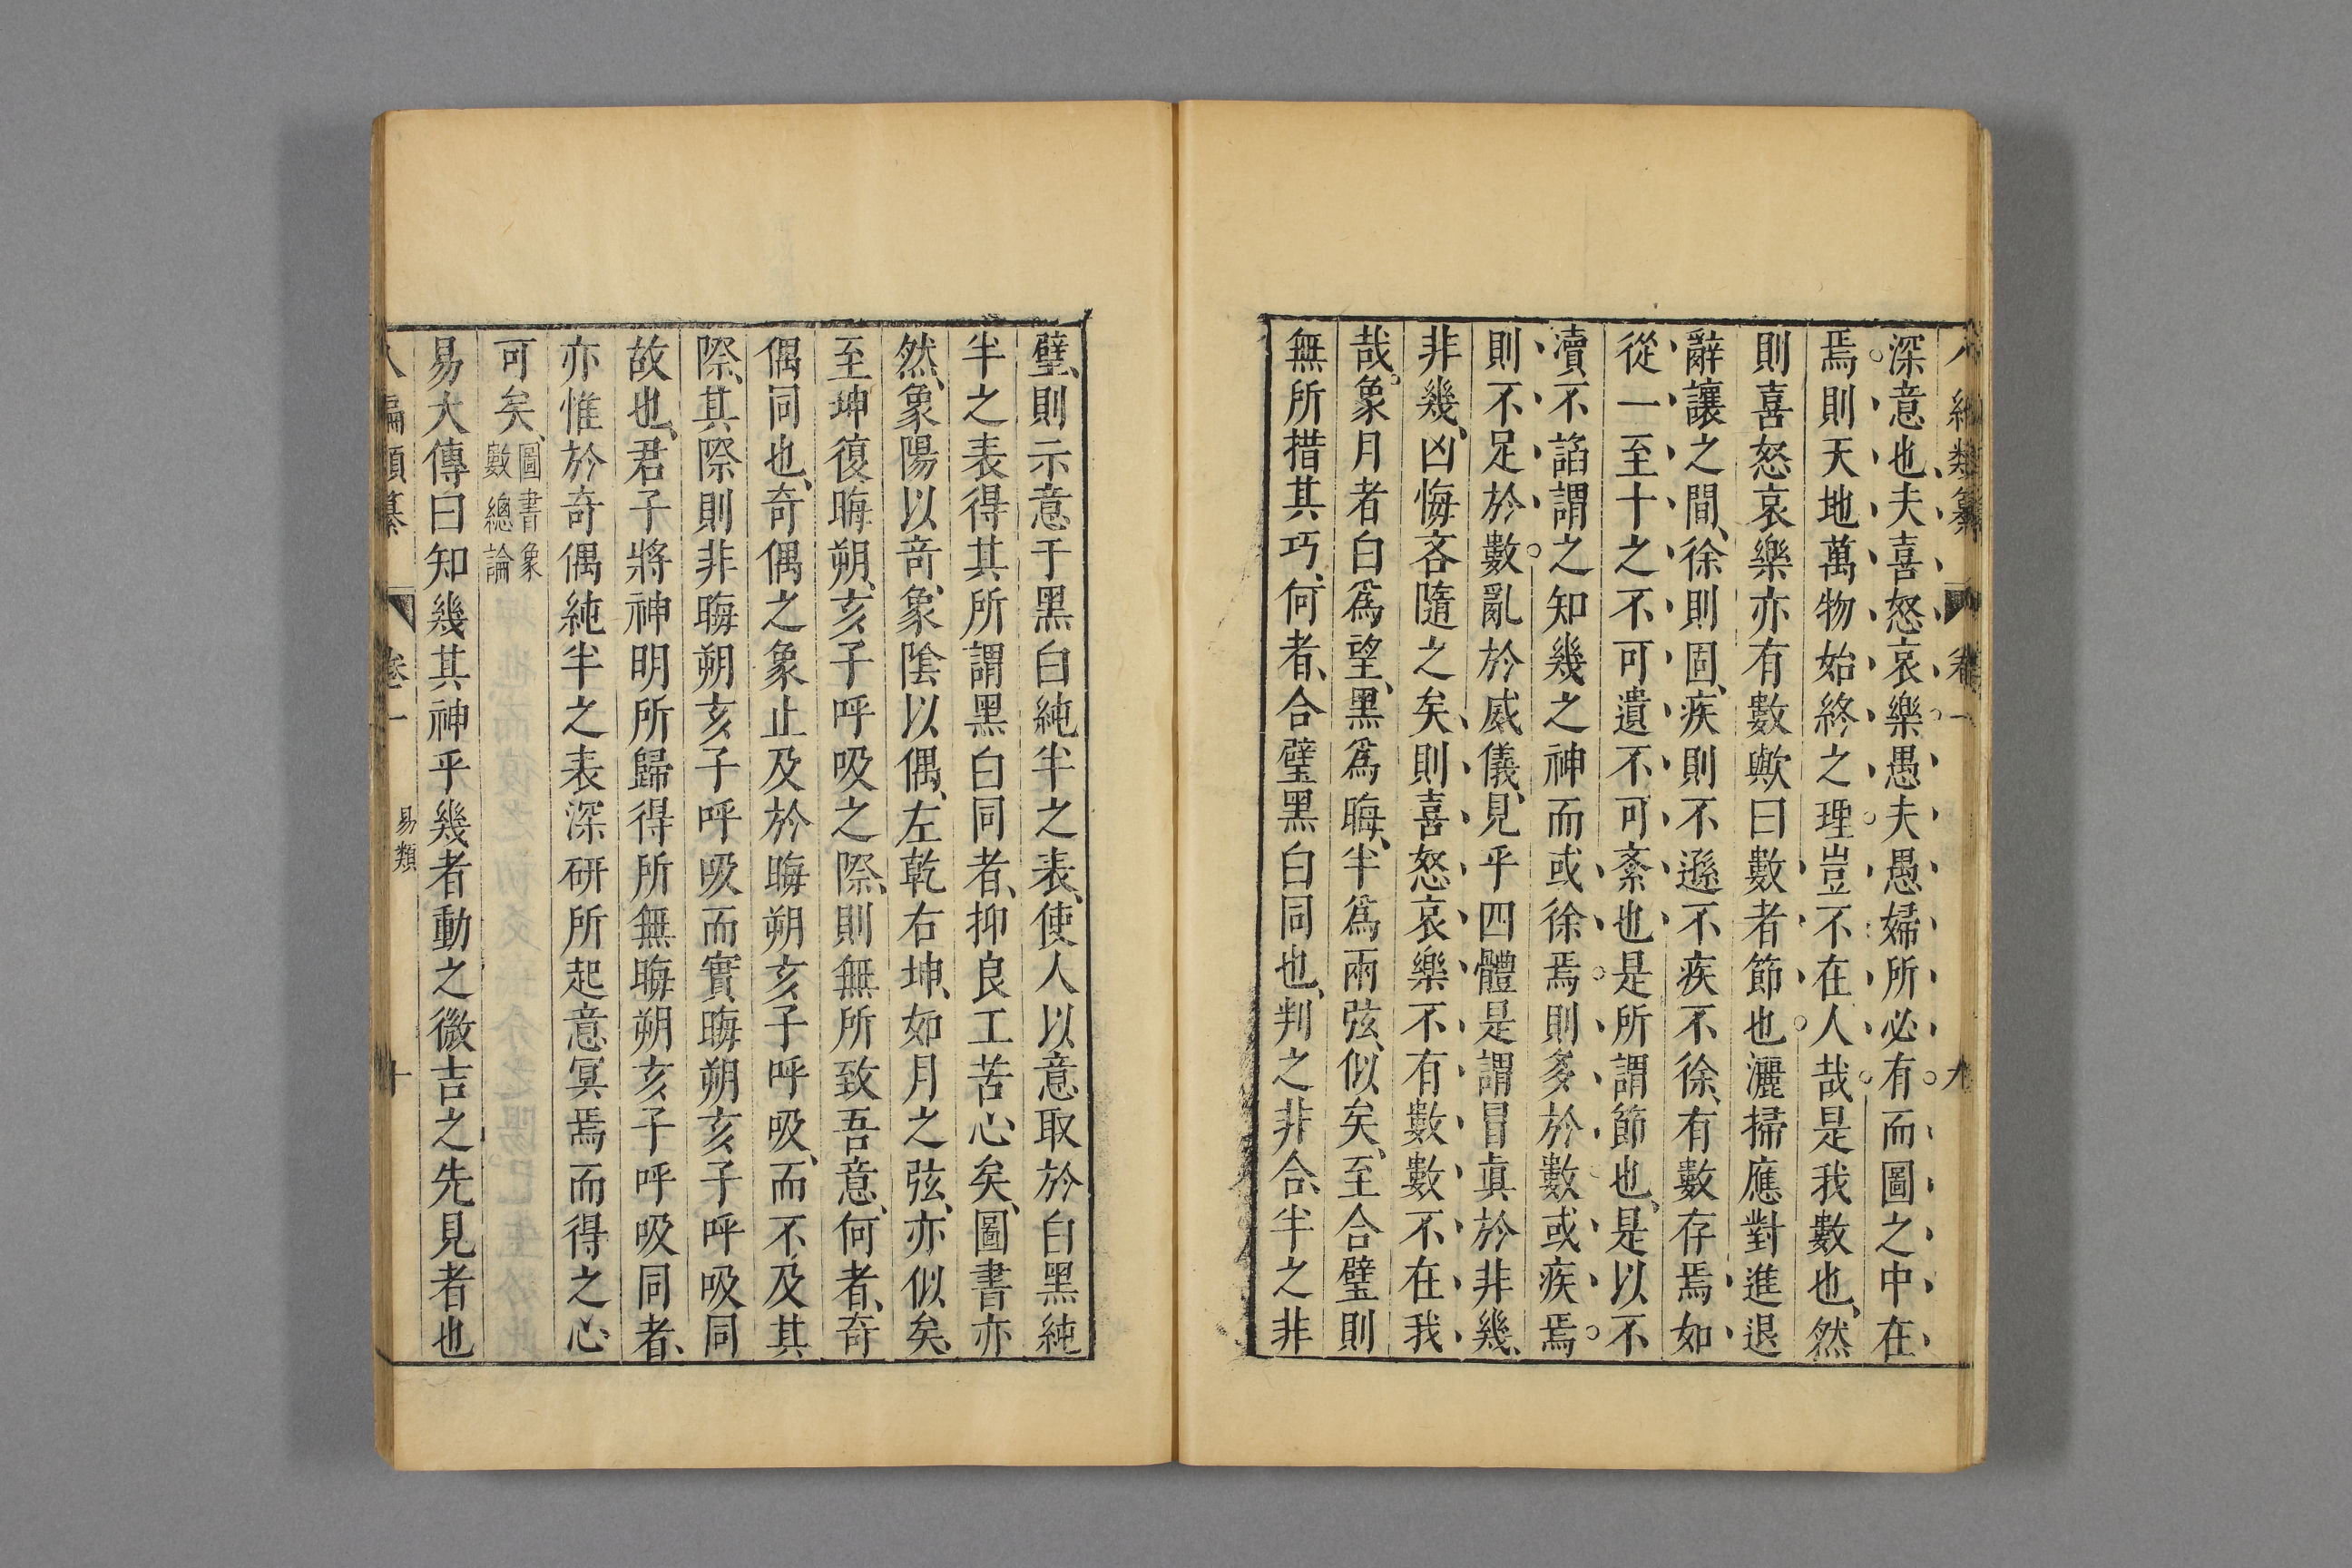 深意也、夫喜怒哀樂愚夫愚婦所必有而圖之中在
焉則天地萬物始終之理豈不在人哉是我數也、然
則喜怒哀樂亦有數歟曰數者節也灑掃應對進退
辭讓之間、徐則固、疾則不遜不疾不徐、有數存焉如
從一至十之不可遺不可紊也是所謂節也、是以不
瀆不諂謂之知幾之神而或徐焉則多於數或疾焉
則不足於數亂於威儀、見乎四體是謂冒眞於非幾、
非幾、凶悔吝隨之矣、則喜怒哀樂不有數數不在我
哉。象月者白爲望、黑爲晦、半爲兩弦、似矣、至合璧則
無所措其巧、何者、合璧黑白同也、判之非合、半之非
璧、則示意于黑白純半之表、使人以意取於白黑純
半之表得其所謂黑白同者、抑良工苦心矣、圖書亦
然、象陽以奇、象陰以偶、左乾右坤、如月之弦、亦似矣、
至坤復晦朔、亥子呼吸之際、則無所致吾意、何者、奇
偶同也、奇偶之象止及於晦朔亥子呼吸、而不及其
際、其際則非晦朔亥子呼吸而實晦朔亥子呼吸同
故也、君子將神明所歸得所無晦朔亥子呼吸同者、
亦惟於奇偶純半之表深研所起意冥焉而得之心
可矣、圖書象
數總論
易大傳曰知幾其神乎幾者動之微吉之先見者也
編類纂 卷一 易類 十